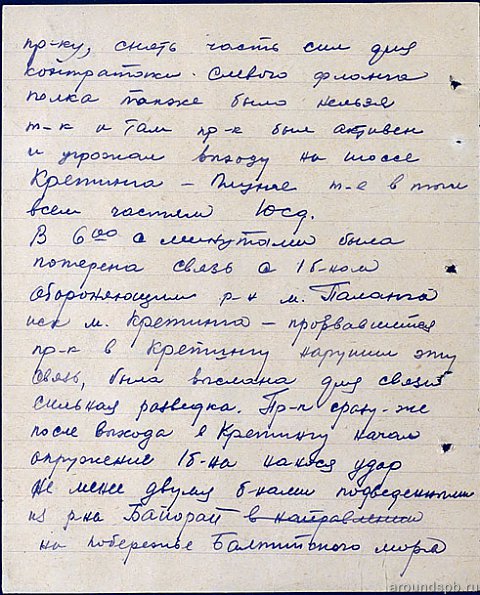 пр-ку, снять часть сил для
контратаки с левого фланга
полка также было нельзя
т-к и там пр-к был активен
и угрожал выходу на шоссе
Кретинга – Плунге т-е в тыл
всем частям 10сд.
В 6⁰⁰ с минутами была
потеряна связь с 1б-ном
обороняющим р-н м. Паланга
иск м. Кретинга – прорвавшийся
пр-к в Кретингу нарушил эту
связь, была выслана для связи
сильная разведка. Пр-к сразу-же
после выхода в Кретингу начал
окружение 1б-на нанося удар
не менее двумя б-нами подведенными
из р-на Байорай в направлении
на побережье Балтийского моря
aroundspb.ru